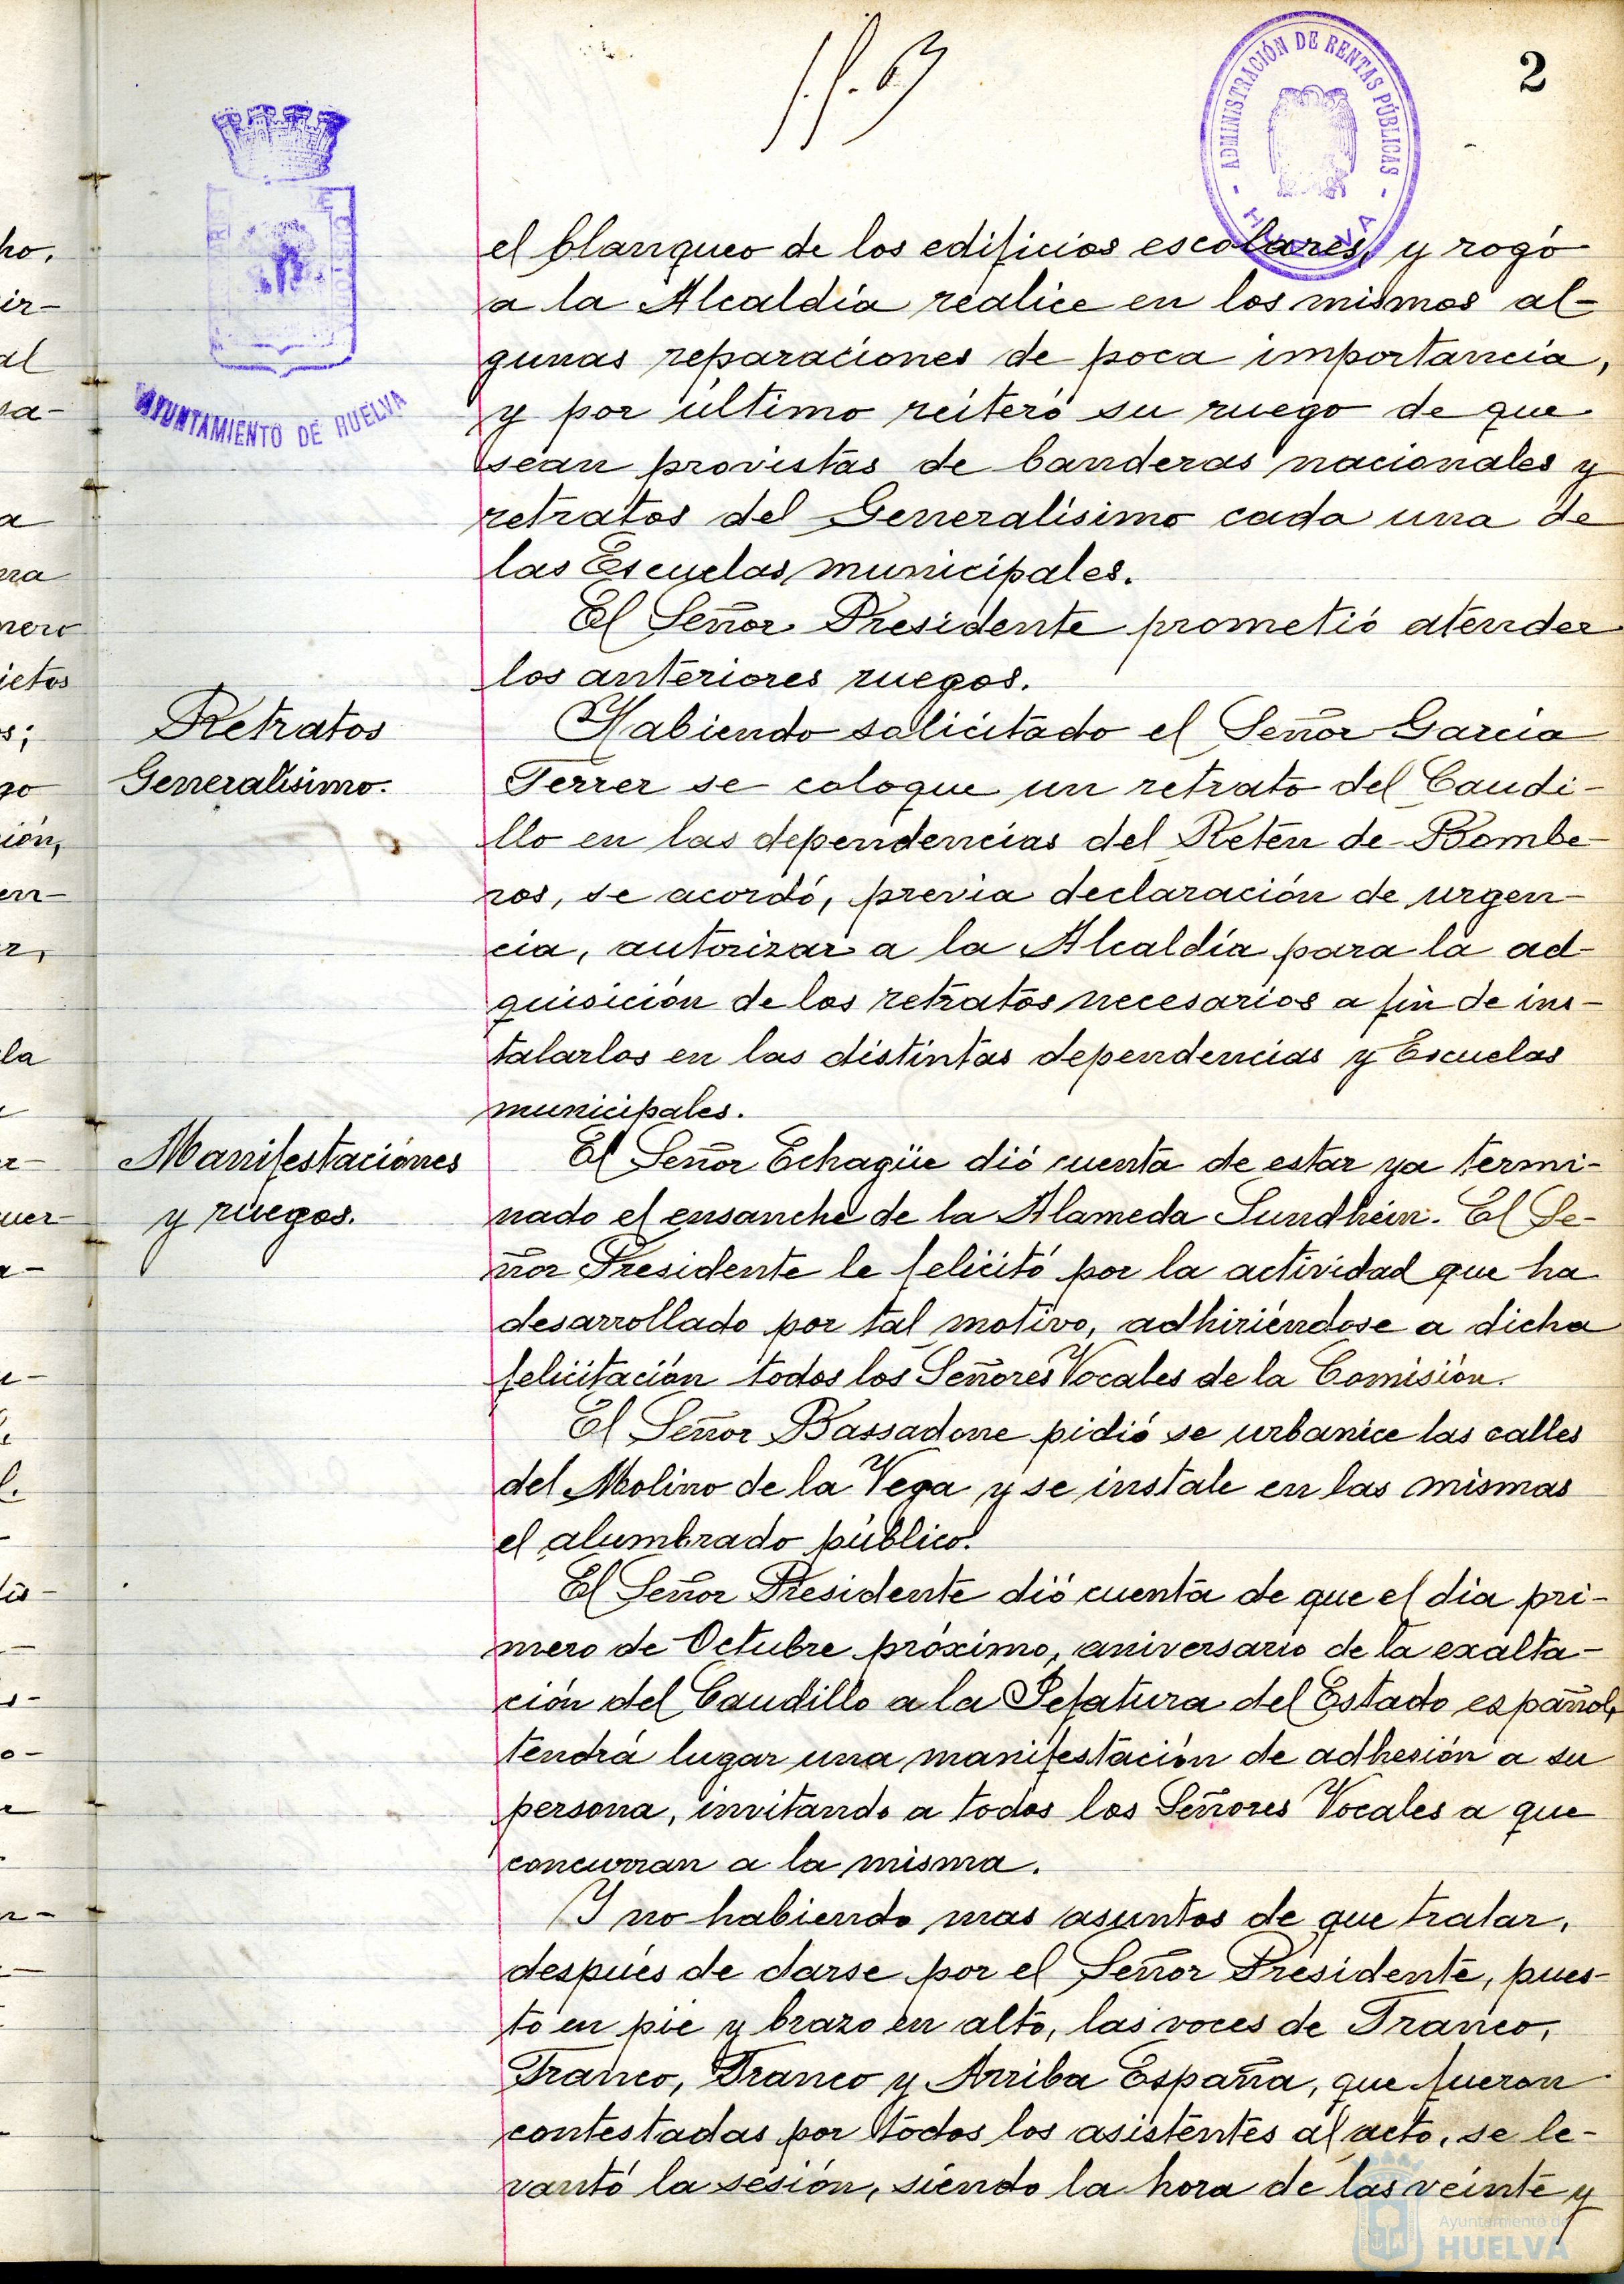 2
ADMINISTRACIÓN DE RENTAS PÚBLICAS
HUELVA
AYUNTAMIENTO DE HUELVA
el blanqueo de los edificios escolares, y rogó
a la Alcaldía realice en los mismos al-
gunas reparaciones de poca importancia,
y por último reiteró su ruego de que
sean provistas de banderas nacionales y
retratos del Generalísimo cada una de
las Escuelas municipales.
El Señor Presidente prometió atender
los anteriores ruegos.
Retratos
Generalísimo.
Habiendo solicitado el Señor García
Ferrer se coloque un retrato del Caudi-
llo en las dependencias del Retén de Bombe-
ros, se acordó, previa declaración de urgen-
cia, autorizar a la Alcaldía para la ad-
quisición de los retratos necesarios a fin de ins-
talarlos en las distintas dependencias y Escuelas
municipales.
Manifestaciones
y ruegos.
El Señor Echagüe dió cuenta de estar ya termi-
nado el ensanche de la Alameda Sundhein. El Se-
ñor Presidente le felicitó por la actividad que ha
desarrollado por tal motivo, adhiriéndose a dicha
felicitación todos los Señores Vocales de la Comisión.
El Señor Bassadone pidió se urbanice las calles
del Molino de la Vega y se instale en las mismas
el alumbrado público.
El Señor Presidente dió cuenta de que el día pri-
mero de Octubre próximo, aniversario de la exalta-
ción del Caudillo a la Jefatura del Estado español,
tendrá lugar una manifestación de adhesión a su
persona, invitando a todos los Señores Vocales a que
concurran a la misma.
Y no habiendo mas asuntos de que tratar,
después de darse por el Señor Presidente, pues-
to en pie y brazo en alto, las voces de Franco,
Franco, Franco y Arriba España, que fueron
contestadas por todos los asistentes al acto, se le-
vantó la sesión, siendo la hora de las veinte y
Ayuntamiento de
HUELVA